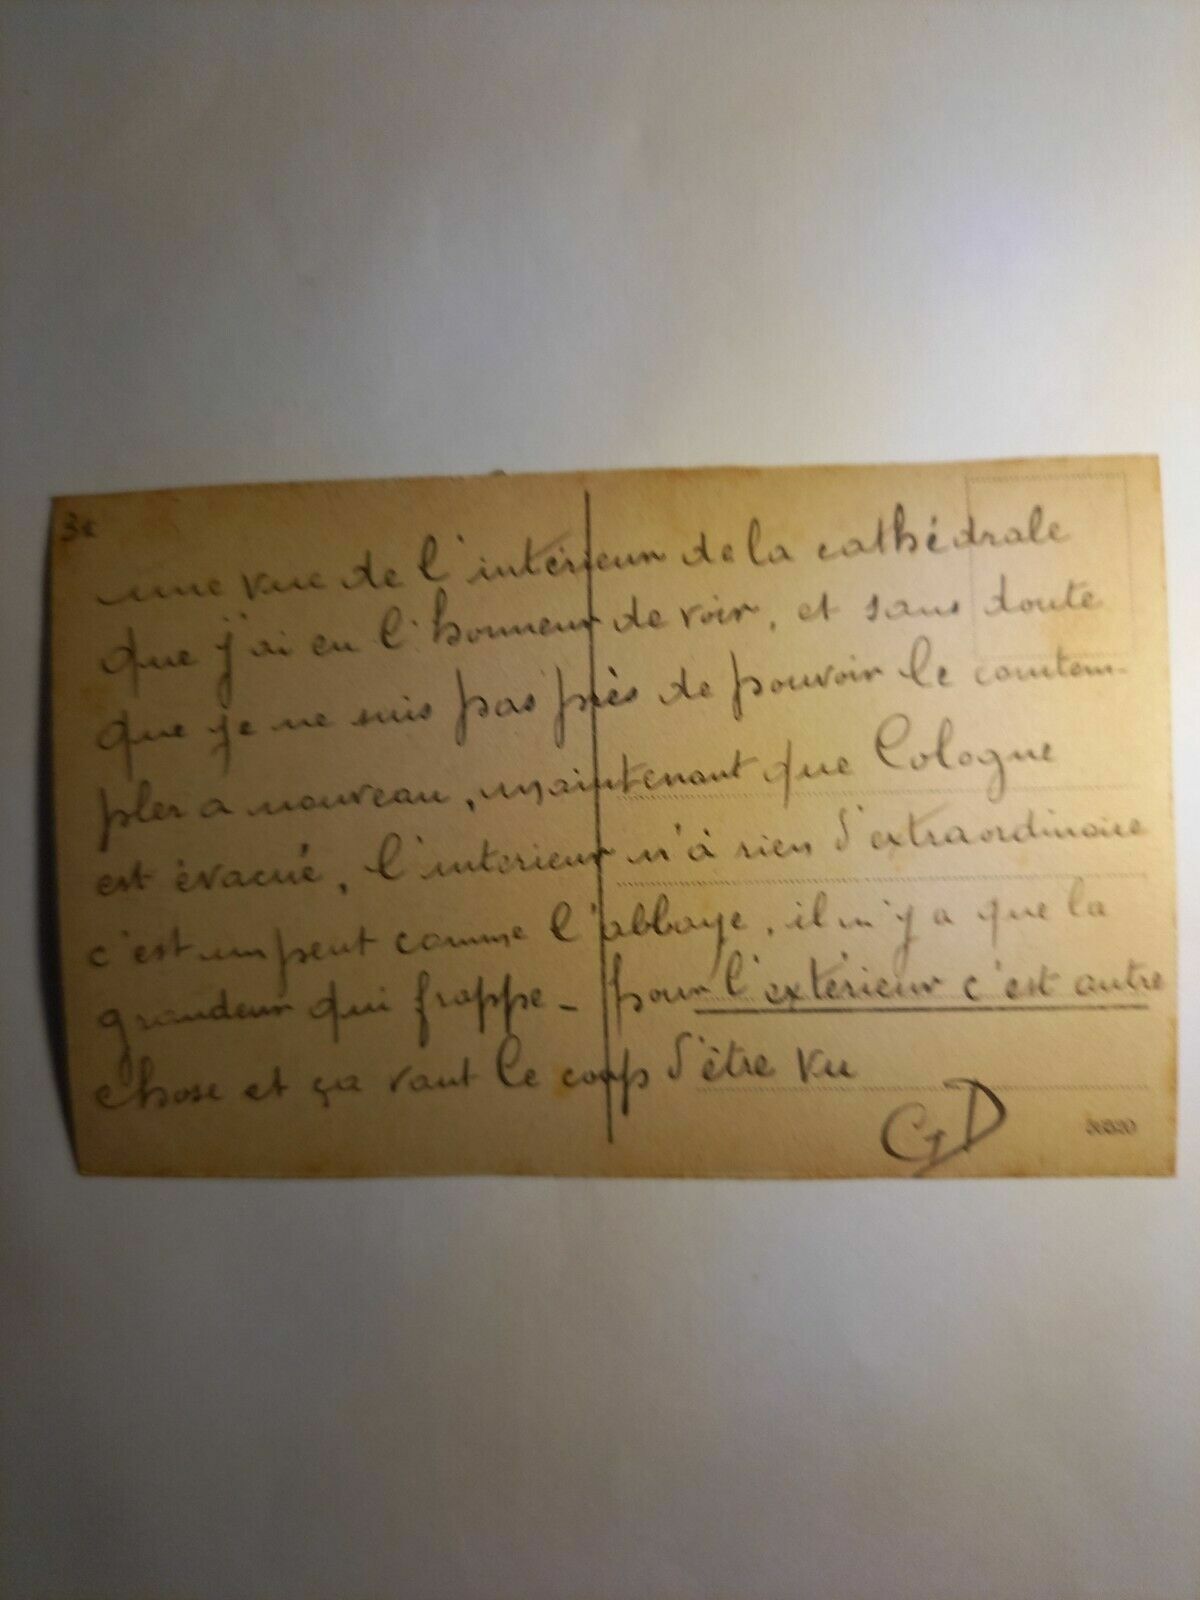 3e
une vue de l'intérieur de la cathédrale
que j'ai eu l'honneur de voir, et sans doute
que je ne suis pas près de pouvoir le contem-
pler a nouveau, maintenant que Cologne
est évacué, l'interieur n'à rien d'extraordinaire
c'est un peut comme l'abbaye, il n'y a que la
grandeur qui frappe - pour l'extérieur c'est autre
chose et ça vaut le coup d'être vu
GD